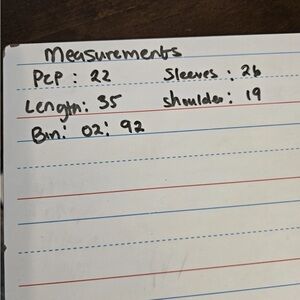 Measurements
PCP : 22 Sleeves : 26
Length: 35 shoulder: 19
Bin: 02: 92